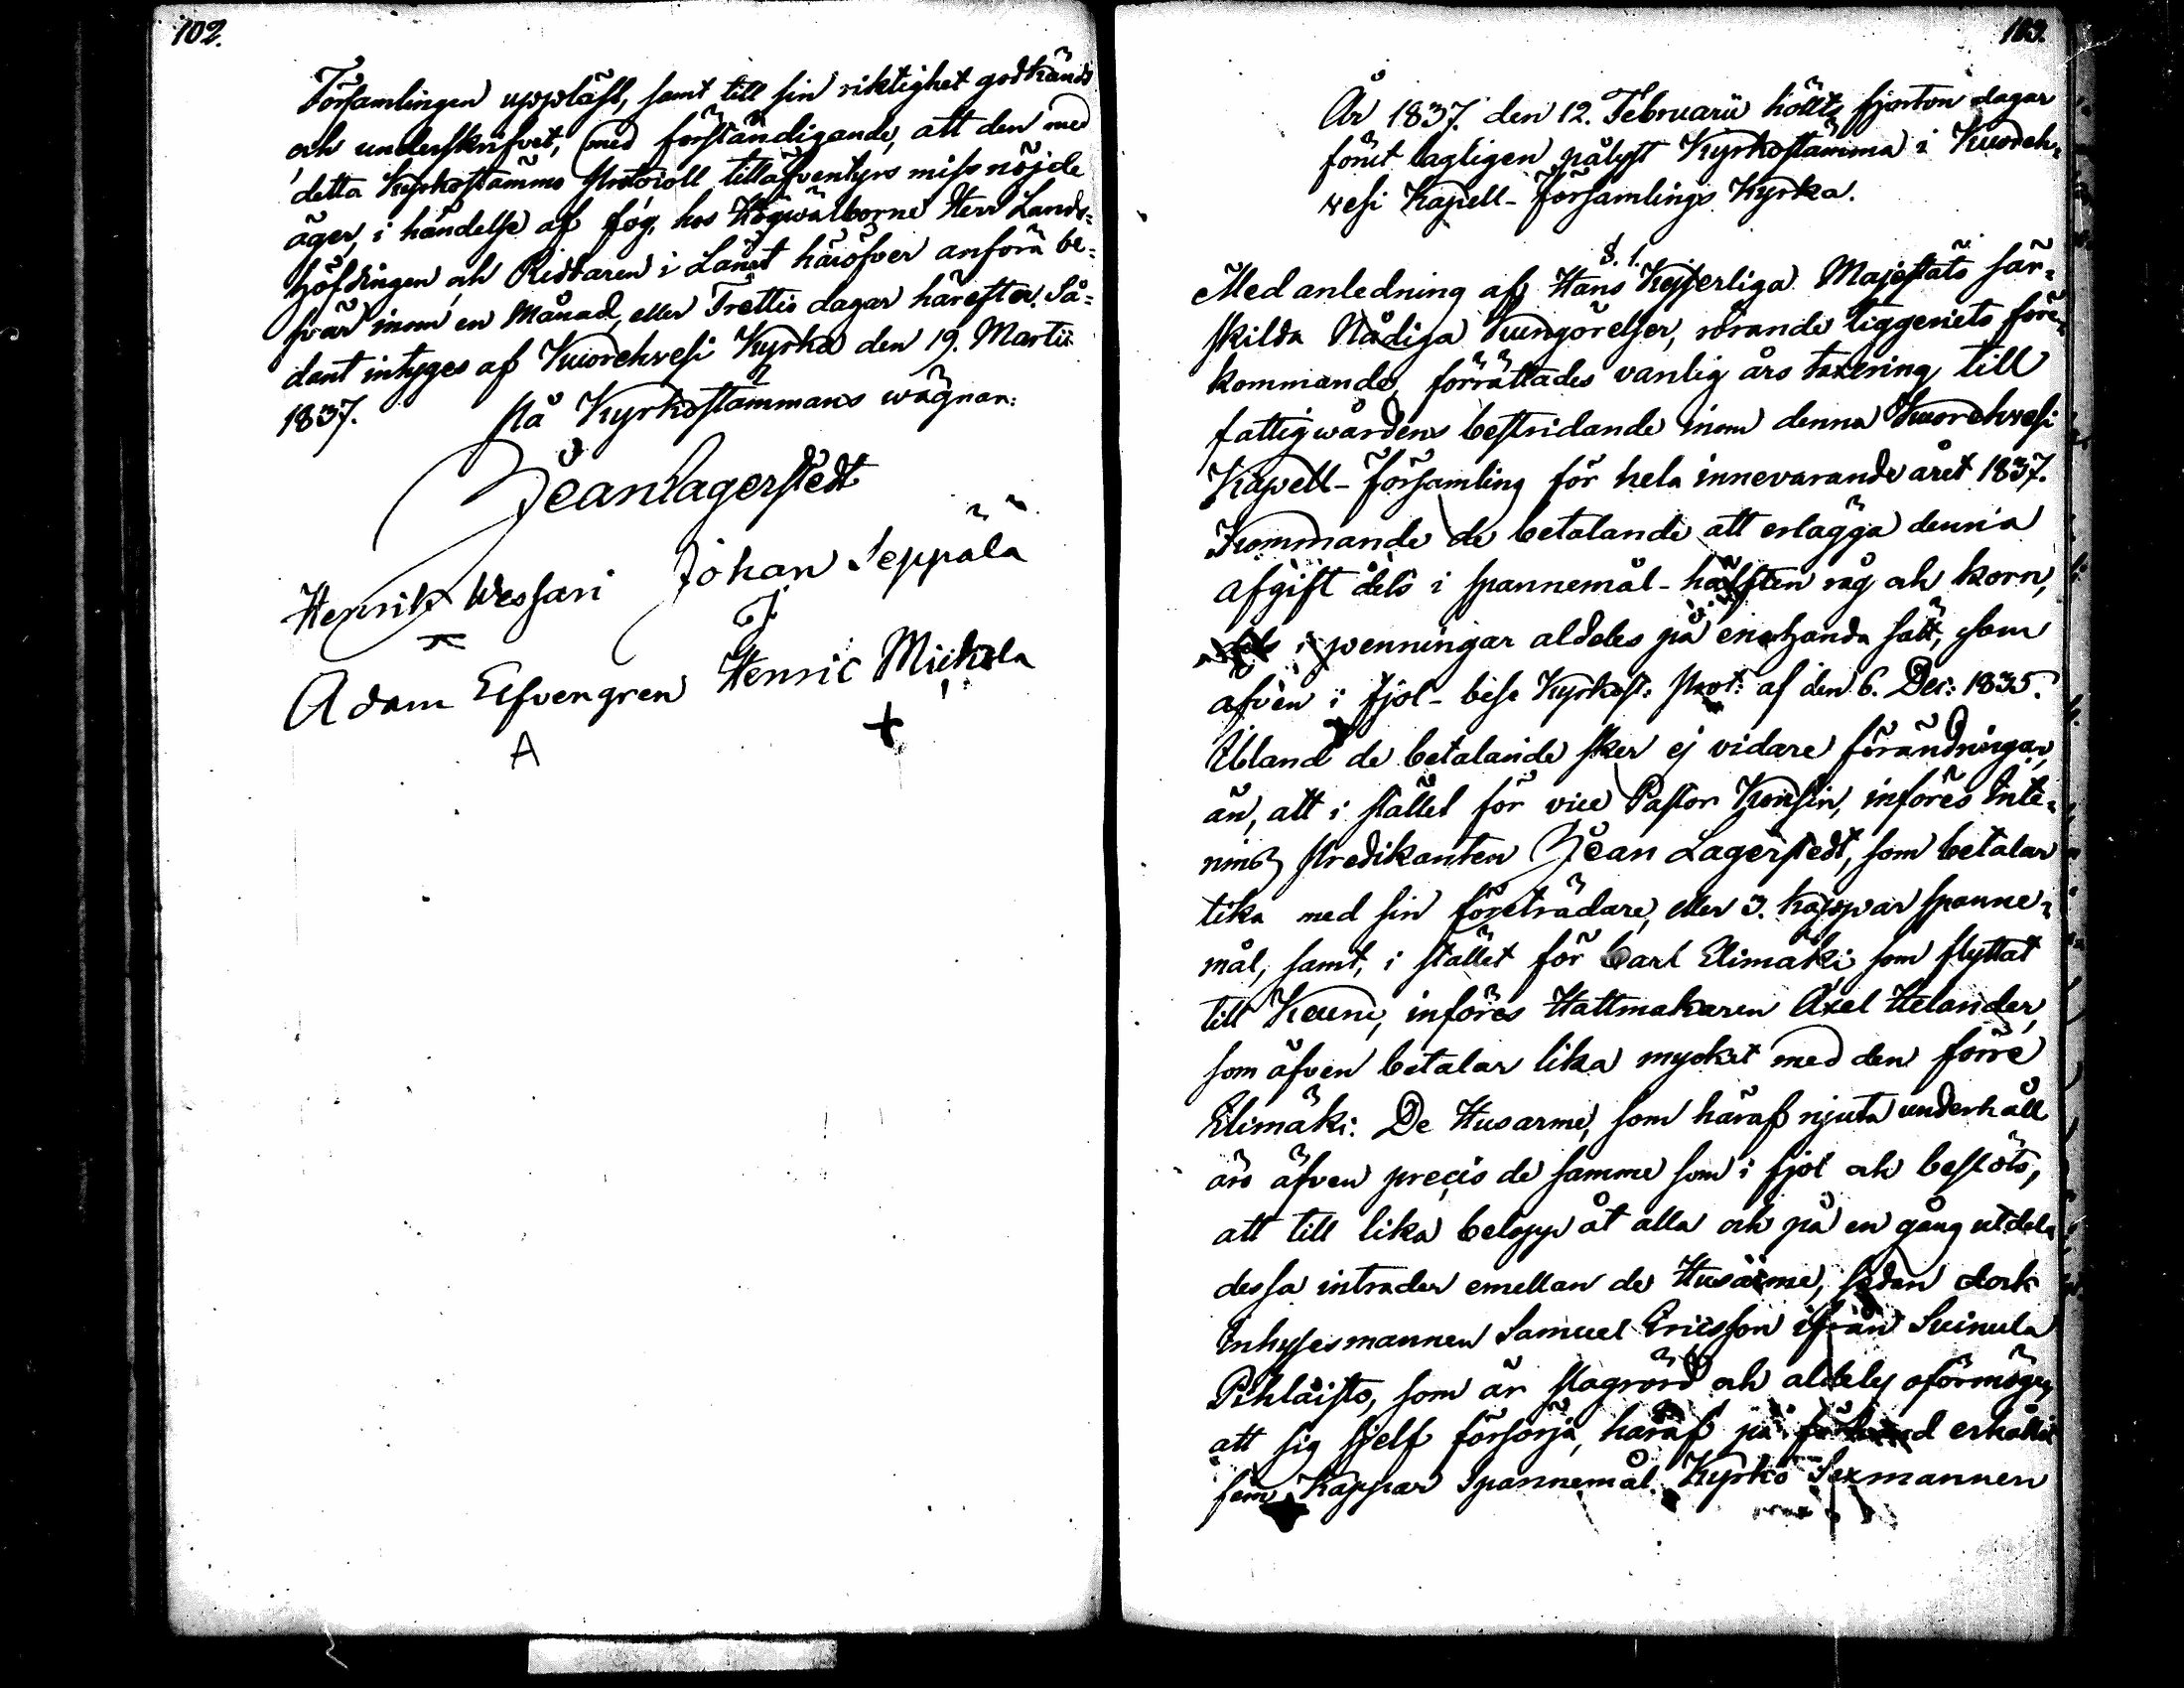 102.
Församlingen uppläst, samt till sin riktighet godkändt
och underskrifvet, med förständigande, att den med
detta Kyrkostämms Protocoll tilläfventyrs missnöjde
äger, i händelse af fog, hos Högwälborne Herr Lands-
höfdingen och Riddaren i Länet häröfver anföra be-
svär inom en Månad, eller Trettio dagar härefter. Så-
dant intyges af Kuorehvesi Kyrka den 19. Martii
1837. På Kyrkostämmans wägnar:
Jean Lagerstedt
Henrik Wessari Johan Seppälä
Adam Elfvengren Henric Mickola
A +
103.
År 1837. den 12. Februarii höllts fjorton dagar
förut lagligen pålyst Kyrkostämma i Kuoreh-
vesi Kapell-Församlings Kyrka.
§. 1.
Med anledning af Hans Kejserliga Majestäts sär-
skilda Nådiga Kungörelser, rörande tiggeriets före-
kommande, förrättades vanlig års taxering till
fattigwårdens bestridande inom denna Kuorehvesi
Kapell-Församling för hela innevarande året 1837.
Kommande de betalande att erlägga denna
afgift dels i spannemål-hälften råg och korn,
dels i penningar aldeles på enahanda sätt, som
äfven i fjol-bese Kyrkost: Prot: af den 6. Dec: 1835.
Ibland de betalande sker ej vidare förändringar,
än, att i stället för vice Pastor Konsin, införes Inte-
rims Predikanten Jean Lagerstedt, som betalar
lika med sin företrädare, eller 3. kappar spanne-
mål, samt, i stället för Carl Elimäki som flyttat
till Keuru, införes Hattmakaren Axel Helander,
som äfven betalar lika mycket med den förre
Elimäki. De Husarme, som häraf njuta underhåll
äro äfven precis de samme som i fjol och beslöts,
att till lika belopp åt alla och på en gång utdela
dessa intrader emellan de Husarme, sedan dock
Inhysesmannen Samuel Ericsson ifrån Suinula
Pihlaisto, som är slagrörd och aldeles oförmögen
att sig sjelf försörja, häraf på förhand erhållit
fem Kappar Spannemål. Kyrko Sexmannen